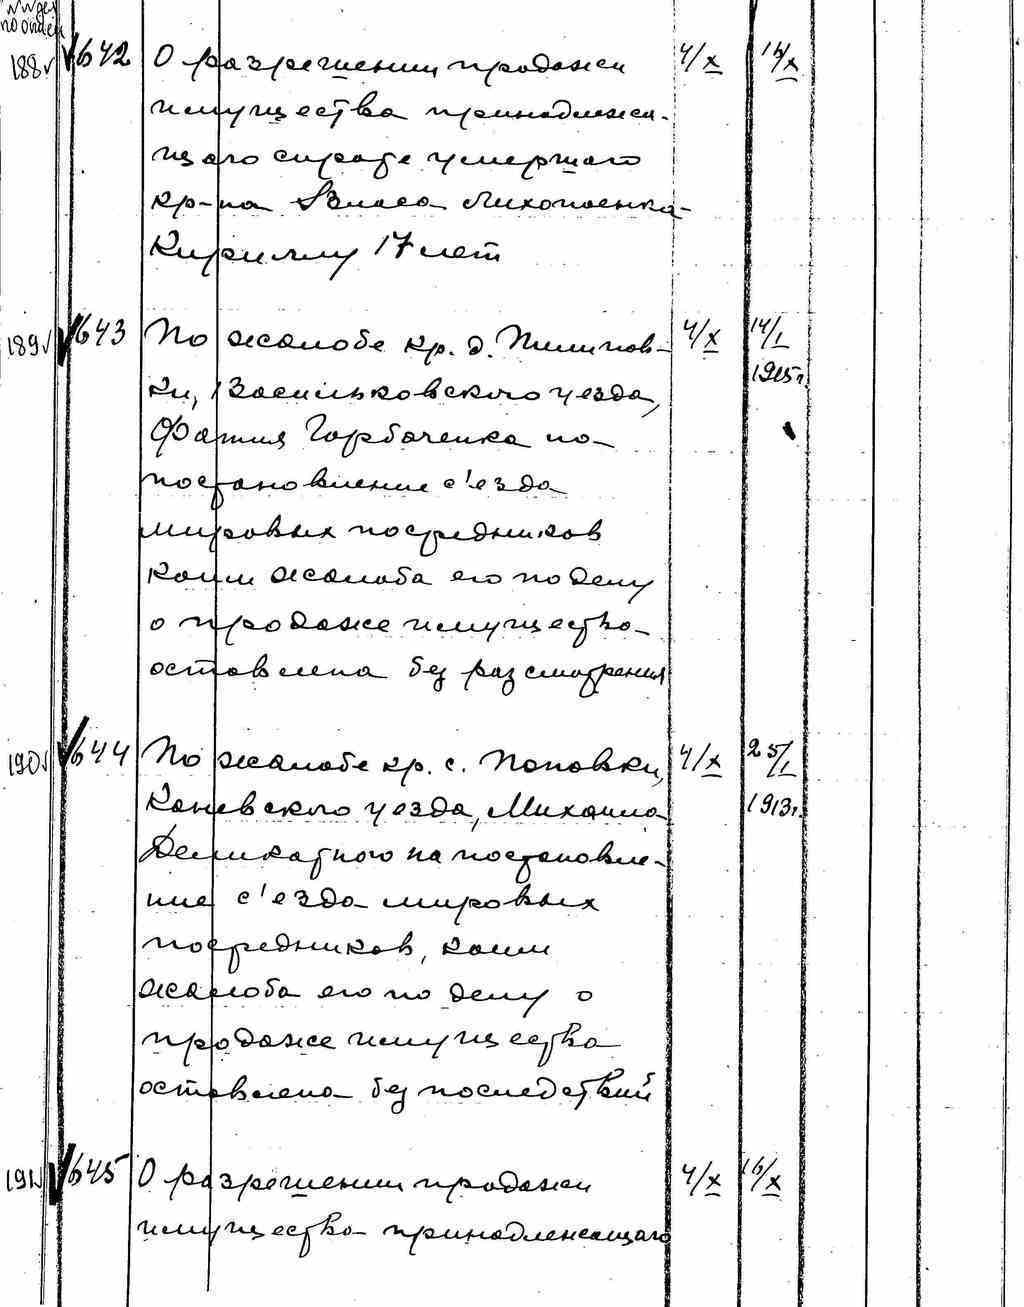 NN дел
по описи
188 642 О разрешении продажи 4/X 14/X
имущества принадлежа-
щаго сироте умершаго
кр-на Власа Лихопоенка
Кириллу 17 лет
189 643 По жалобе кр. д. Пилипов- 4/X 14/I
ки, Васильковского уезда, 1915г.
Фотия Горбаченка на
постановление с'езда
мировых посредников
коим жалоба его по делу
о продаже имущества
оставлена без разсмотрения
190 644 По жалобе кр. с. Поповки, 4/X 25/I
Каневского уезда, Михаила 1913г.
Деликатного на постановле-
ние с'езда мировых
посредников, коим
жалоба его по делу о
продаже имущества
оставлена без последствий
191 645 О разрешении продажи 4/X 16/X
имущества принадлежащаго